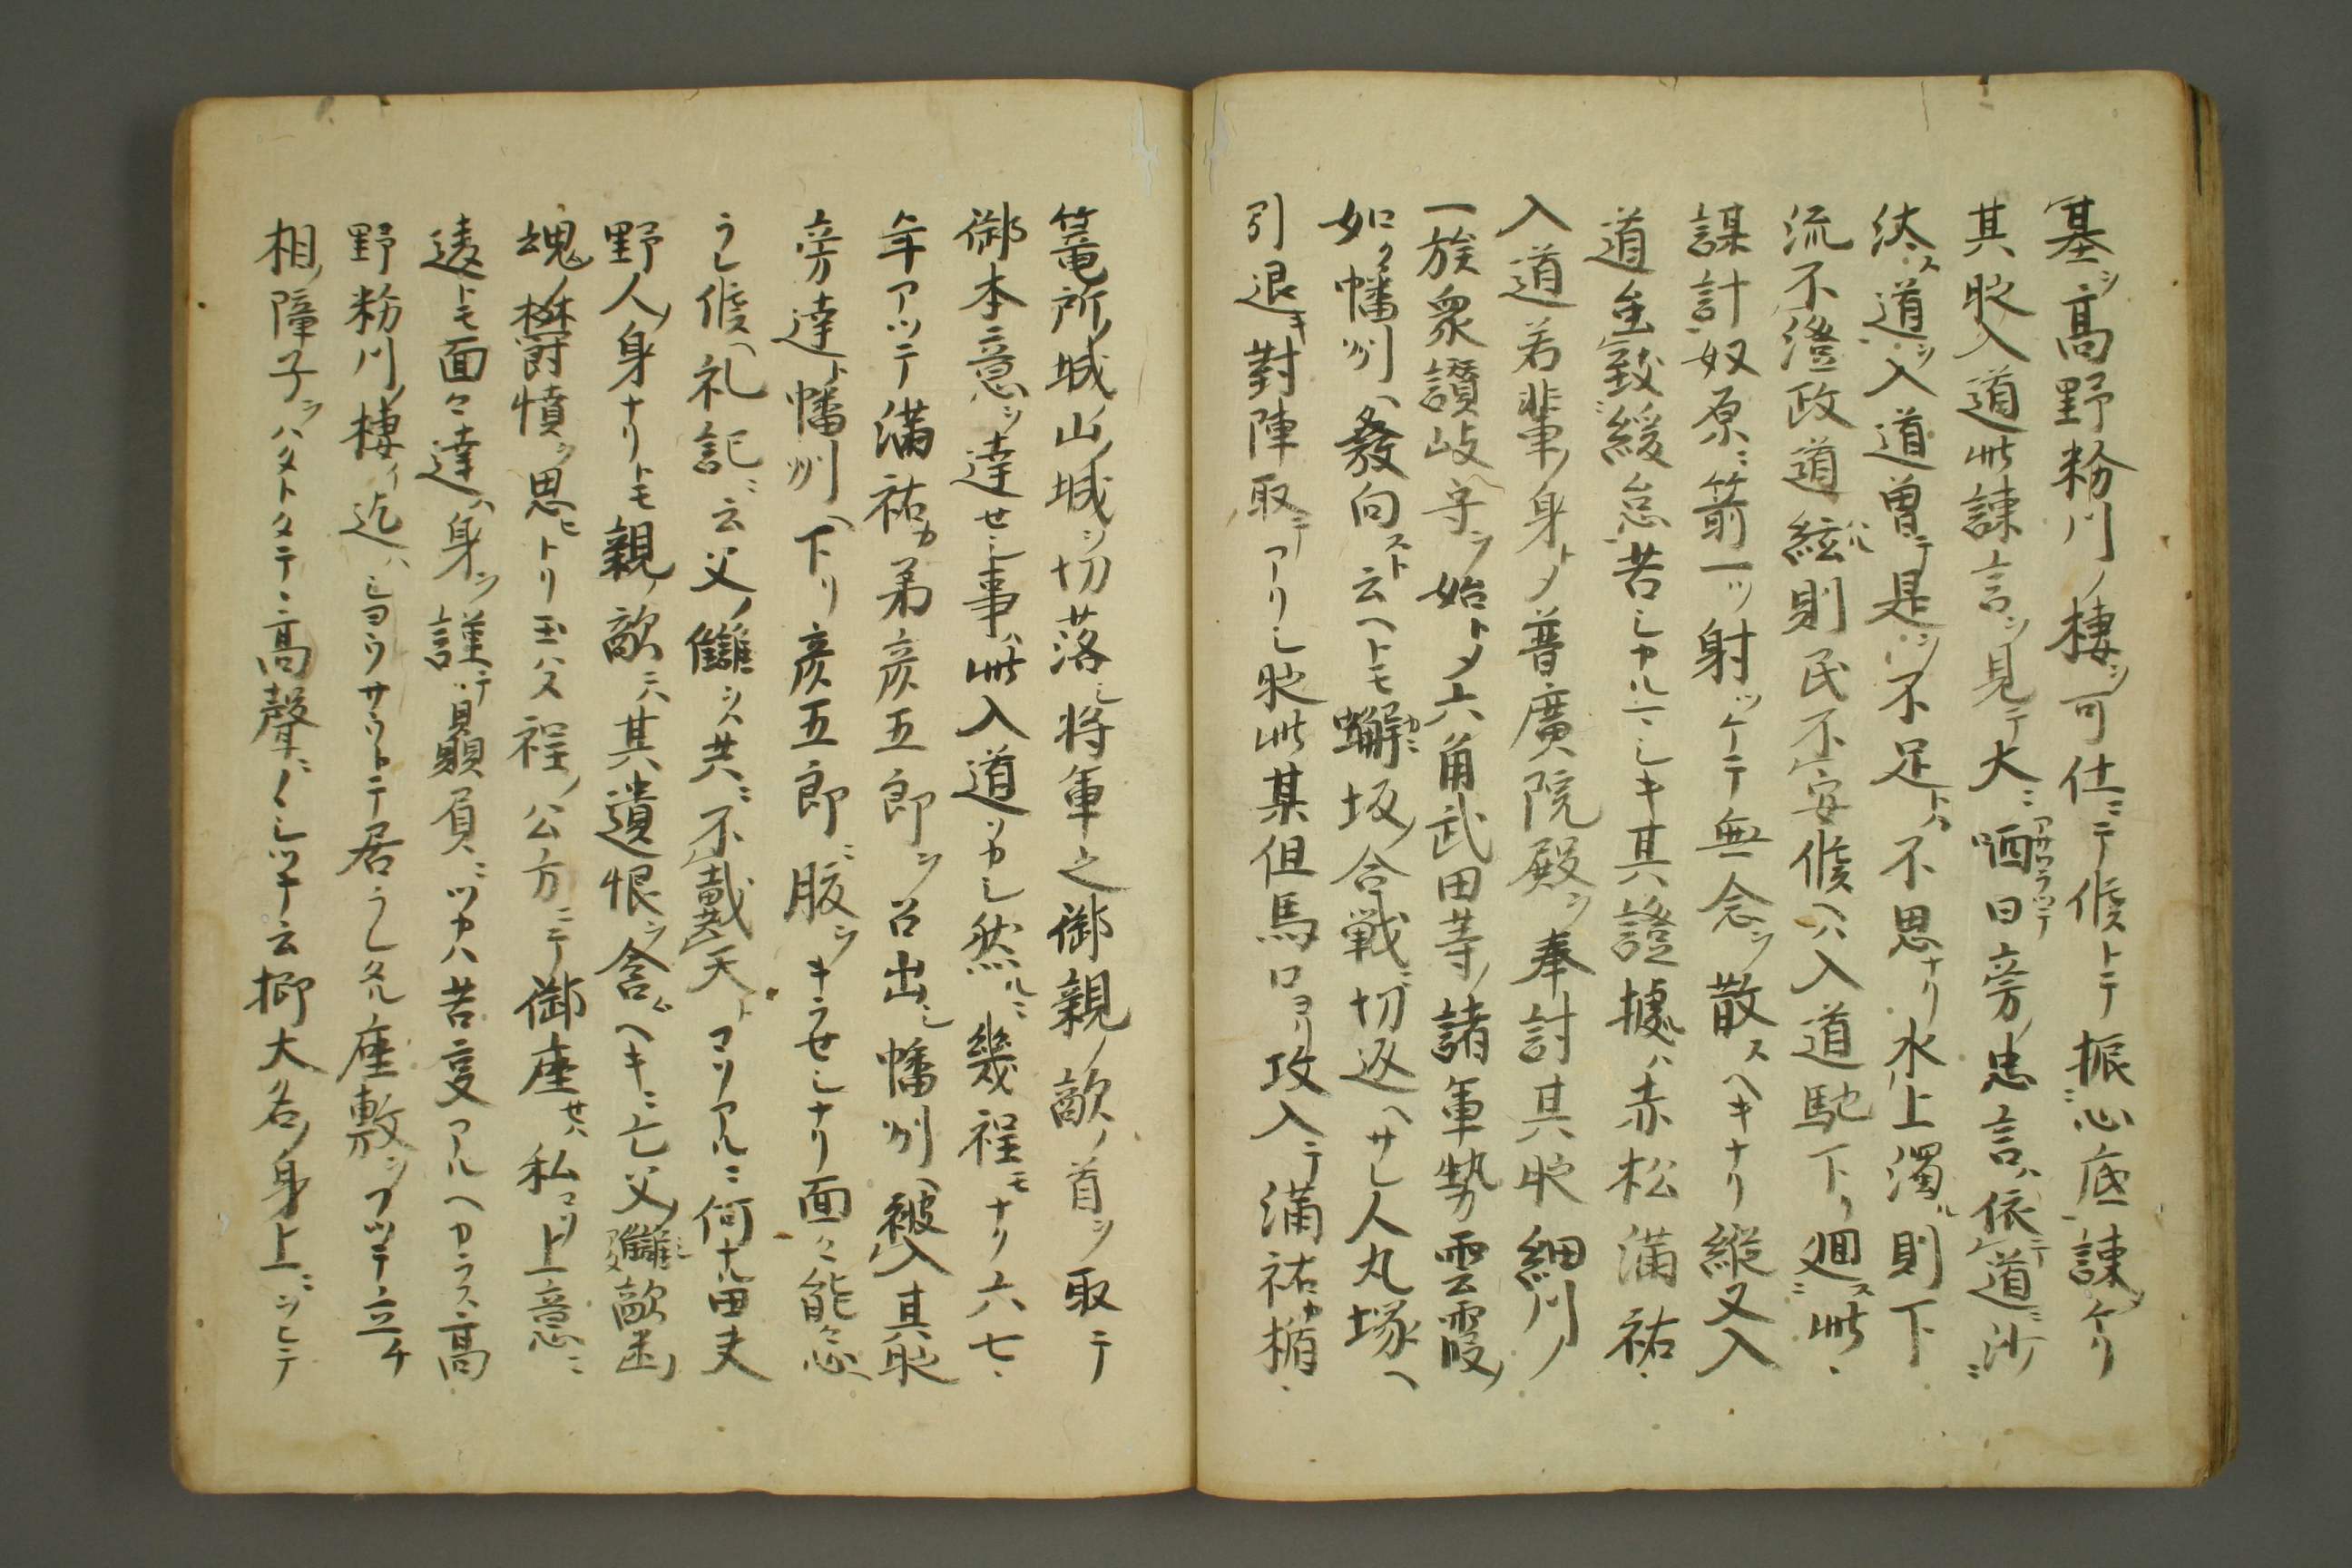 基ヲ高野粉川ノ棲ヲ可仕ニテ候トテ振心底諫ケリ
其時入道此諫言ヲ見テ大ニ哂アサワラツテ曰旁ノ忠言ハ依道ニ沙
汰ス道ヲ入道曽テ是ヲ不足トハ不思ナリ水上濁ル則下
流不澄政道絃ハル則民不安候ヘハ入道馳下リ廻ス此ニ
謀計奴原ニ箭一ツ射ツケテ無念ヲ散スヘキナリ縱又入
道至致緩怠苦シカルマシキ其證據ハ赤松滿祐
入道若輩ノ身トメ普廣院殿ヲ奉討其時細川ノ
一族衆讃岐守ヲ始トメ六角武田等ノ諸軍勢雲霞ノ
如ク幡州ヘ發向スト云ヘトモ蠏カニ坂ノ合戰ニ切返ヘサレ人丸塚ヘ
引退キ對陣取テアリシ時此某但馬口ヨリ攻入テ滿祐カ楯
篭所ノ城山ノ城ヲ切落シ將軍之御親ノ敵ノ首ヲ取テ
御本意ヲ達セシ事ハ此入道ソカシ然ルニ幾程モナク六七
年アツテ滿祐カ弟彦五郎ヲ召出シ幡州ヘ被入其時
旁達ト幡州ヘ下リ彦五郎ニ腹ヲキラセシナリ面々能忘
ラレ候ヘ礼記ニ云父ノ讎ニハ共ニ不戴天トコソアルニ何ナル田夫
野人ノ身ナリトモ親ノ敵ニハ其遺恨ヲ含ムヘキニ亡父ノ讎敵出ノ
魂ノ欝憤ヲ思ヒトリ玉ハス程ノ公方ニテ御座セハ私コソ上意ニ
違トモ面々達ハ身ヲ謹テ贔屓ニツカハ苦變アルヘカラス高
野粉川ノ棲イ迄ハシヨウサウトテ居ラレタル座敷ヲフツテ立チ
相ノ障子ヲハタトタテ高聲ニノヽシツテ云抑大名ノ身上ニシテ